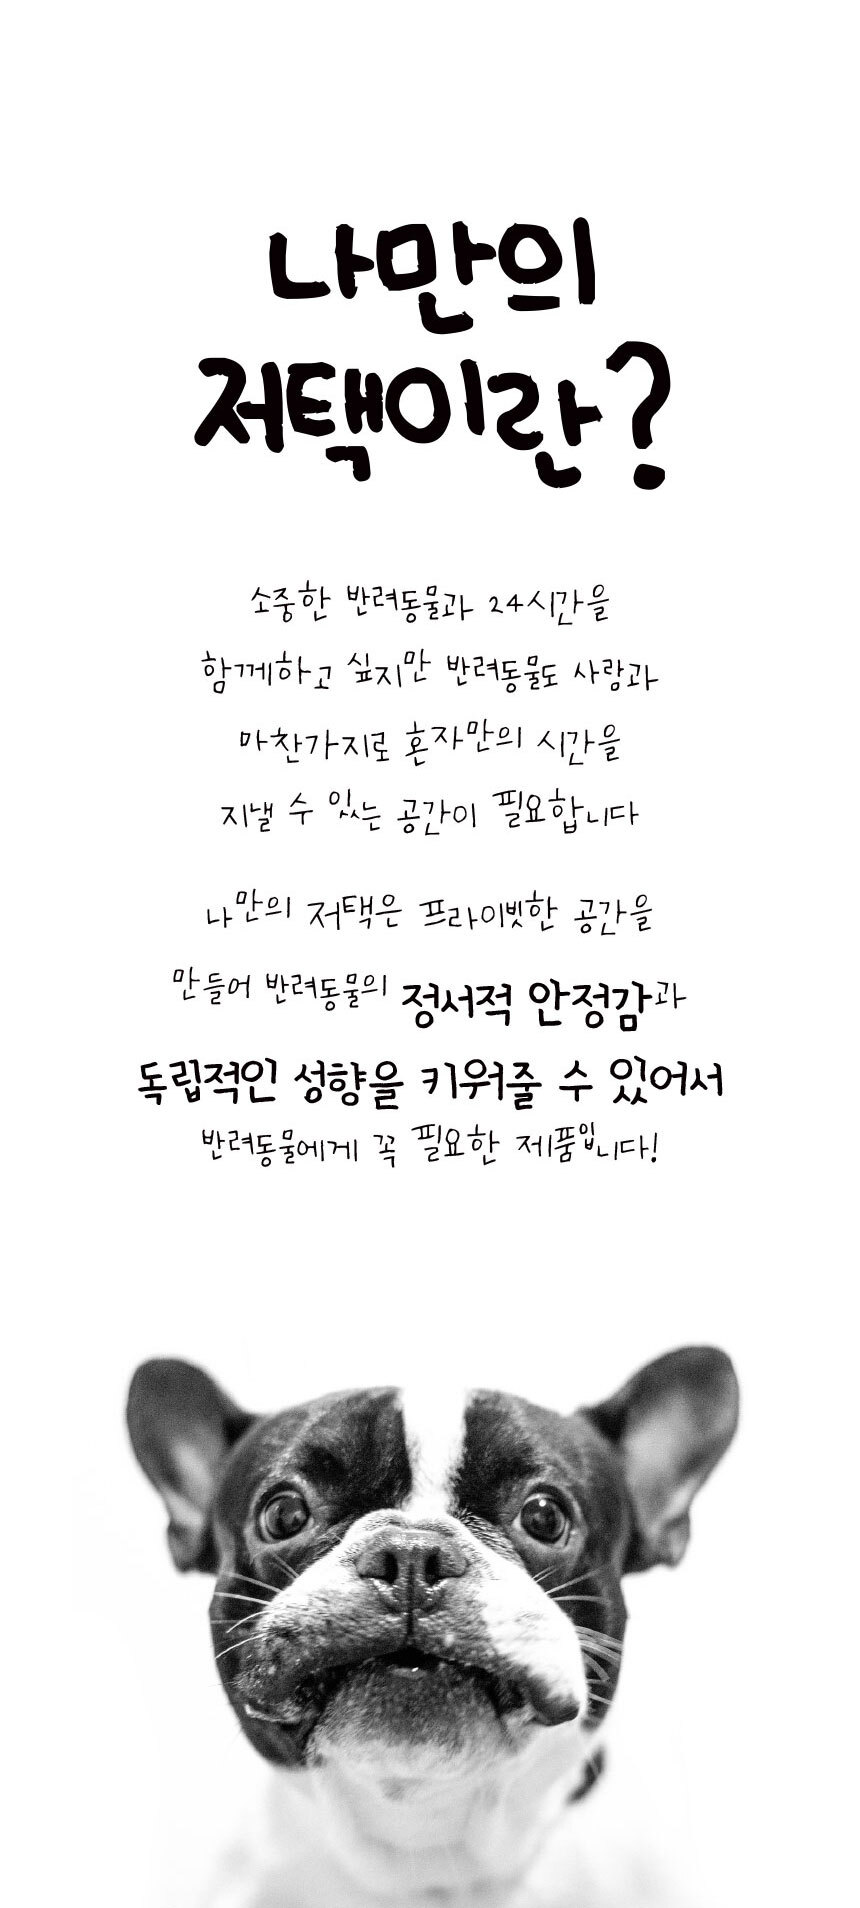 나만의
저택이란?
소중한 반려동물과 24시간을
함께하고 싶지만 반려동물도 사람과
마찬가지로 혼자만의 시간을
지낼 수 있는 공간이 필요합니다
나만의 저택은 프라이빗한 공간을
만들어 반려동물의 정서적 안정감과
독립적인 성향을 키워줄 수 있어서
반려동물에게 꼭 필요한 제품입니다!